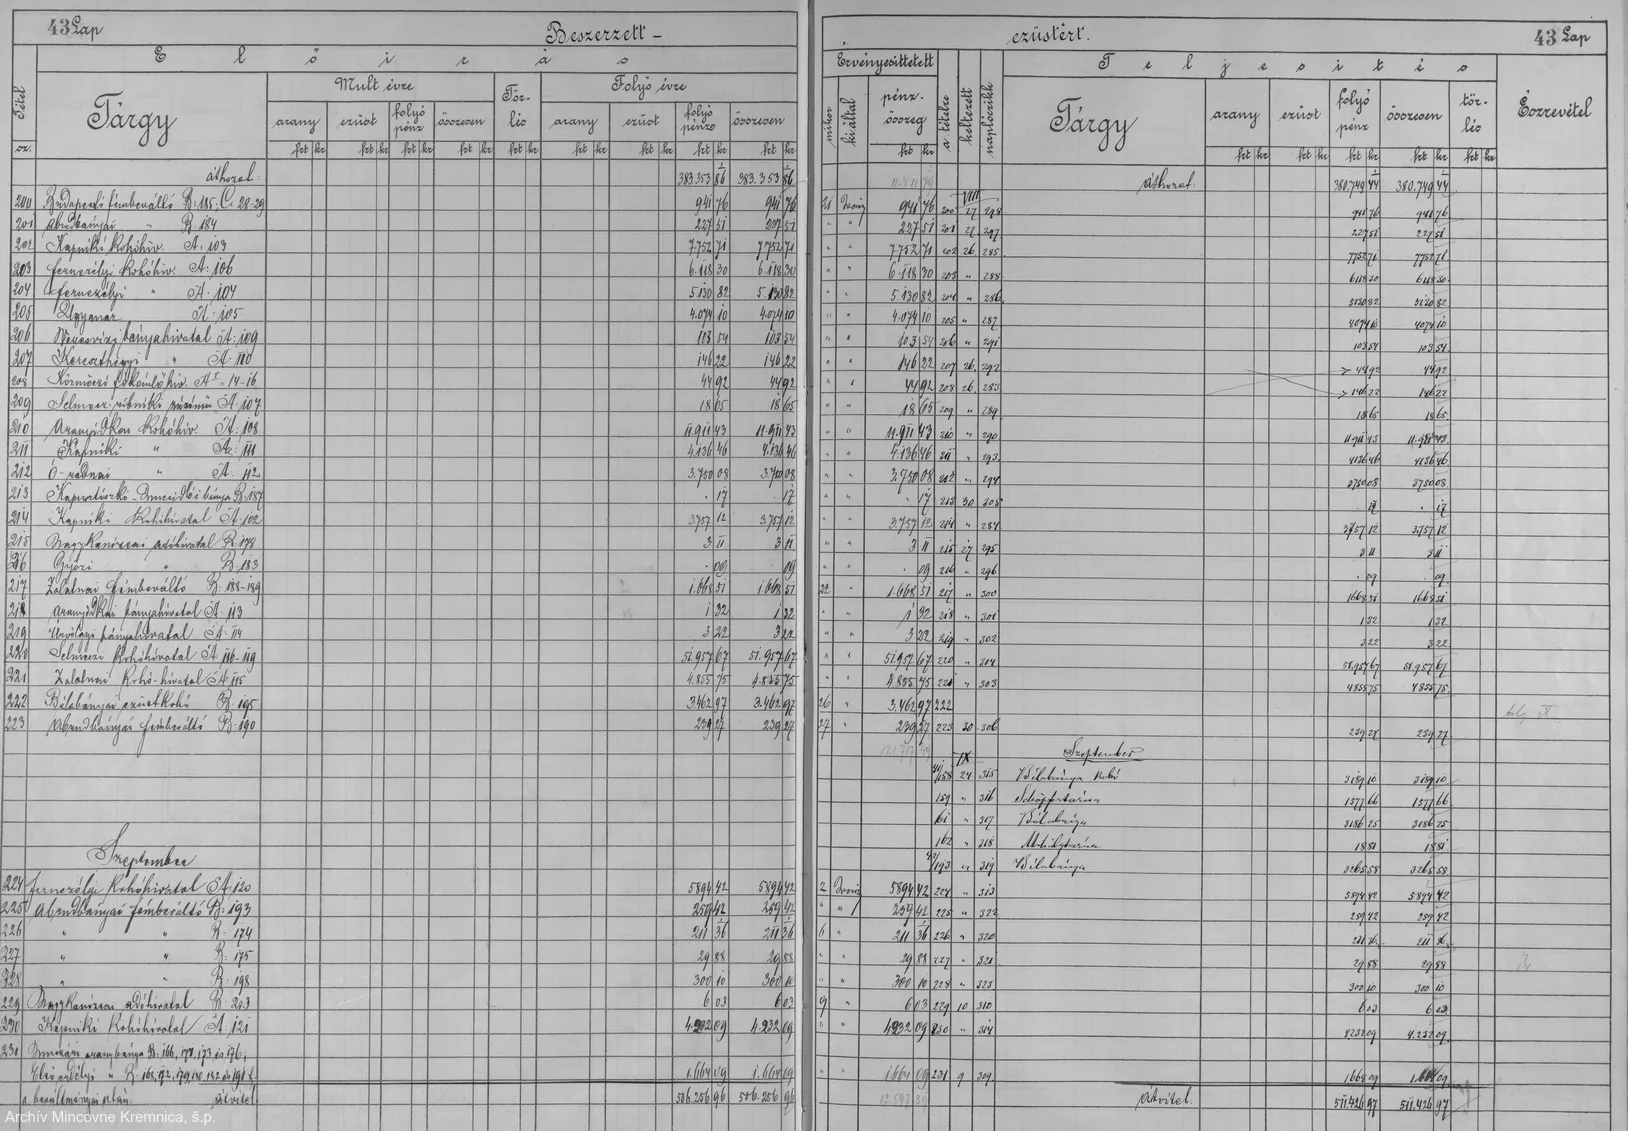 43 Lap
Beszerzett -
ezüstért.
43 Lap
Előirás
Érvényesittetett
Teljesités
Tétel sz.
Tárgy
Mult évre
Tör-lés
Folyó évre
arany ezüst folyó pénz összesen
arany ezüst folyó pénz összesen
mikor ki által pénz-összeg a tételre keltezett naplóczikk
Tárgy
arany ezüst folyó pénz összesen tör-lés
Észrevétel
frt kr frt kr frt kr frt kr frt kr frt kr frt kr frt kr frt kr
áthozat: 383.353 86 383.353 86
áthozat: 380.749 44 380.749 44
VIII
200 Budapesti fémbeváltó B: 185; C: 28-29 941 76 941 76 21 941 76 200 27 298 941 76 941 76
201 Abrudbányai " B: 184 227 51 227 51 " " 227 51 201 27 297 227 51 227 51
202 Kapniki Kohóhiv. A: 103 7752 71 7752 71 " " 7752 71 202 26 285 7752 71 7752 71
203 Fernezélyi Kohóhiv. A: 106 6.118 30 6.118 30 " " 6.118 30 203 " 288 6118 30 6118 30
204 Fernezélyi " A: 104 5130 82 5.130 82 " " 5.130 82 204 " 286 5130 82 5130 82
205 Ugyanaz A: 105 4.074 10 4.074 10 " " 4.074 10 205 " 287 4074 10 4074 10
206 Veresvizi bányahivatal A: 109 103 54 103 54 " " 103 54 206 " 291 103 54 103 54
207 Kereszthegyi " A: 110 146 22 146 22 " " 146 22 207 26 292 44 92 44 92
208 Körmöczi főkémlőhiv. A: 14-16 44 92 44 92 " " 44 92 208 26 283 146 22 146 22
209 A: 107 18 65 18 65 " " 18 65 209 " 289 18 65 18 65
210 Aranyidkai Kohóhiv. A: 108 11.911 43 11.911 43 " " 11.911 43 210 " 290 11911 43 11.911 43
211 Kapniki " A: 111 4.136 46 4.136 46 " " 4.136 46 211 " 293 4136 46 4136 46
212 Ó-radnai " A: 112 3.750 08 3.750 08 " " 3.750 08 212 " 294 3750 08 3750 08
213 B: 187 . 17 . 17 " " . 17 213 30 305 . 17 . 17
214 Kapniki Kohóhivatal A: 102 3.757 12 3.757 12 " " 3.757 12 214 " 284 3757 12 3.757 12
215 Nagykanizsai adóhivatal B: 178 3 11 3 11 " " 3 11 215 27 295 3 11 3 11
216 Győri " B: 183 . 09 . 09 " " . 09 216 " 296 . 09 . 09
217 Zalatnai fémbeváltó B: 188-189 1.668 51 1.668 51 22 " 1.668 51 217 " 300 1668 51 1668 51
218 Aranyidkai bányahivatal A: 113 1 32 1 32 " " 1 32 218 " 301 1 32 1 32
219 Úrvölgyi bányahivatal A: 114 3 22 3 22 " " 3 22 219 " 302 3 22 3 22
220 Selmeczi Kohóhivatal A: 116-119 51.957 67 51.957 67 " " 51.957 67 220 " 304 51.957 67 51.957 67
221 Zalatnai Kohó-hivatal A: 115 4.855 75 4.855 75 " " 4.855 75 221 " 303 4855 75 4855 75
222 Bélabányai ezüstkohó B: 195 3.462 97 3.462 97 26 " 3.462 97 222
223 Abrudbányai fémbeváltó B: 190 239 27 239 27 27 " 239 27 223 30 306 239 27 239 27
Szeptember
IX
158 24 315 Bélabánya kohó 3189 10 3189 10
159 " 316 1577 66 1577 66
161 " 317 Bélabánya 3186 25 3186 25
162 " 318 18 81 18 81
193 " 319 Bélabánya 3265 58 3265 58
Szeptember
224 Fernezélyi Kohóhivatal A: 120 5894 42 5894 42 2 5894 42 224 " 313 5894 42 5894 42
225 Abrudbányai fémbeváltó B: 193 259 42 259 42 " " 259 42 225 " 322 259 42 259 42
226 " " B: 174 211 36 211 36 6 " 211 36 226 " 320 211 36 211 36
227 " " B: 175 29 88 29 88 " " 29 88 227 " 321 29 88 29 88
228 " " B: 198 300 10 300 10 " " 300 10 228 " 323 300 10 300 10
229 Nagykanizsai adóhivatal B: 203 6 03 6 03 9 " 6 03 229 10 310 6 03 6 03
230 Kapniki Kohóhivatal A: 121 4.232 09 4.232 09 " " 4232 09 230 " 314 4232 09 4.232 09
231 aranybánya B: 166, 171, 173 és 176,
Első erdélyi " 1.664 09 1.664 09 " " 1.664 09 231 9 309 1664 09 1.664 09
átvitel 506.256 96 506.256 96
átvitel: 511.426 97 511.426 97
Archív Mincovne Kremnica, š.p.